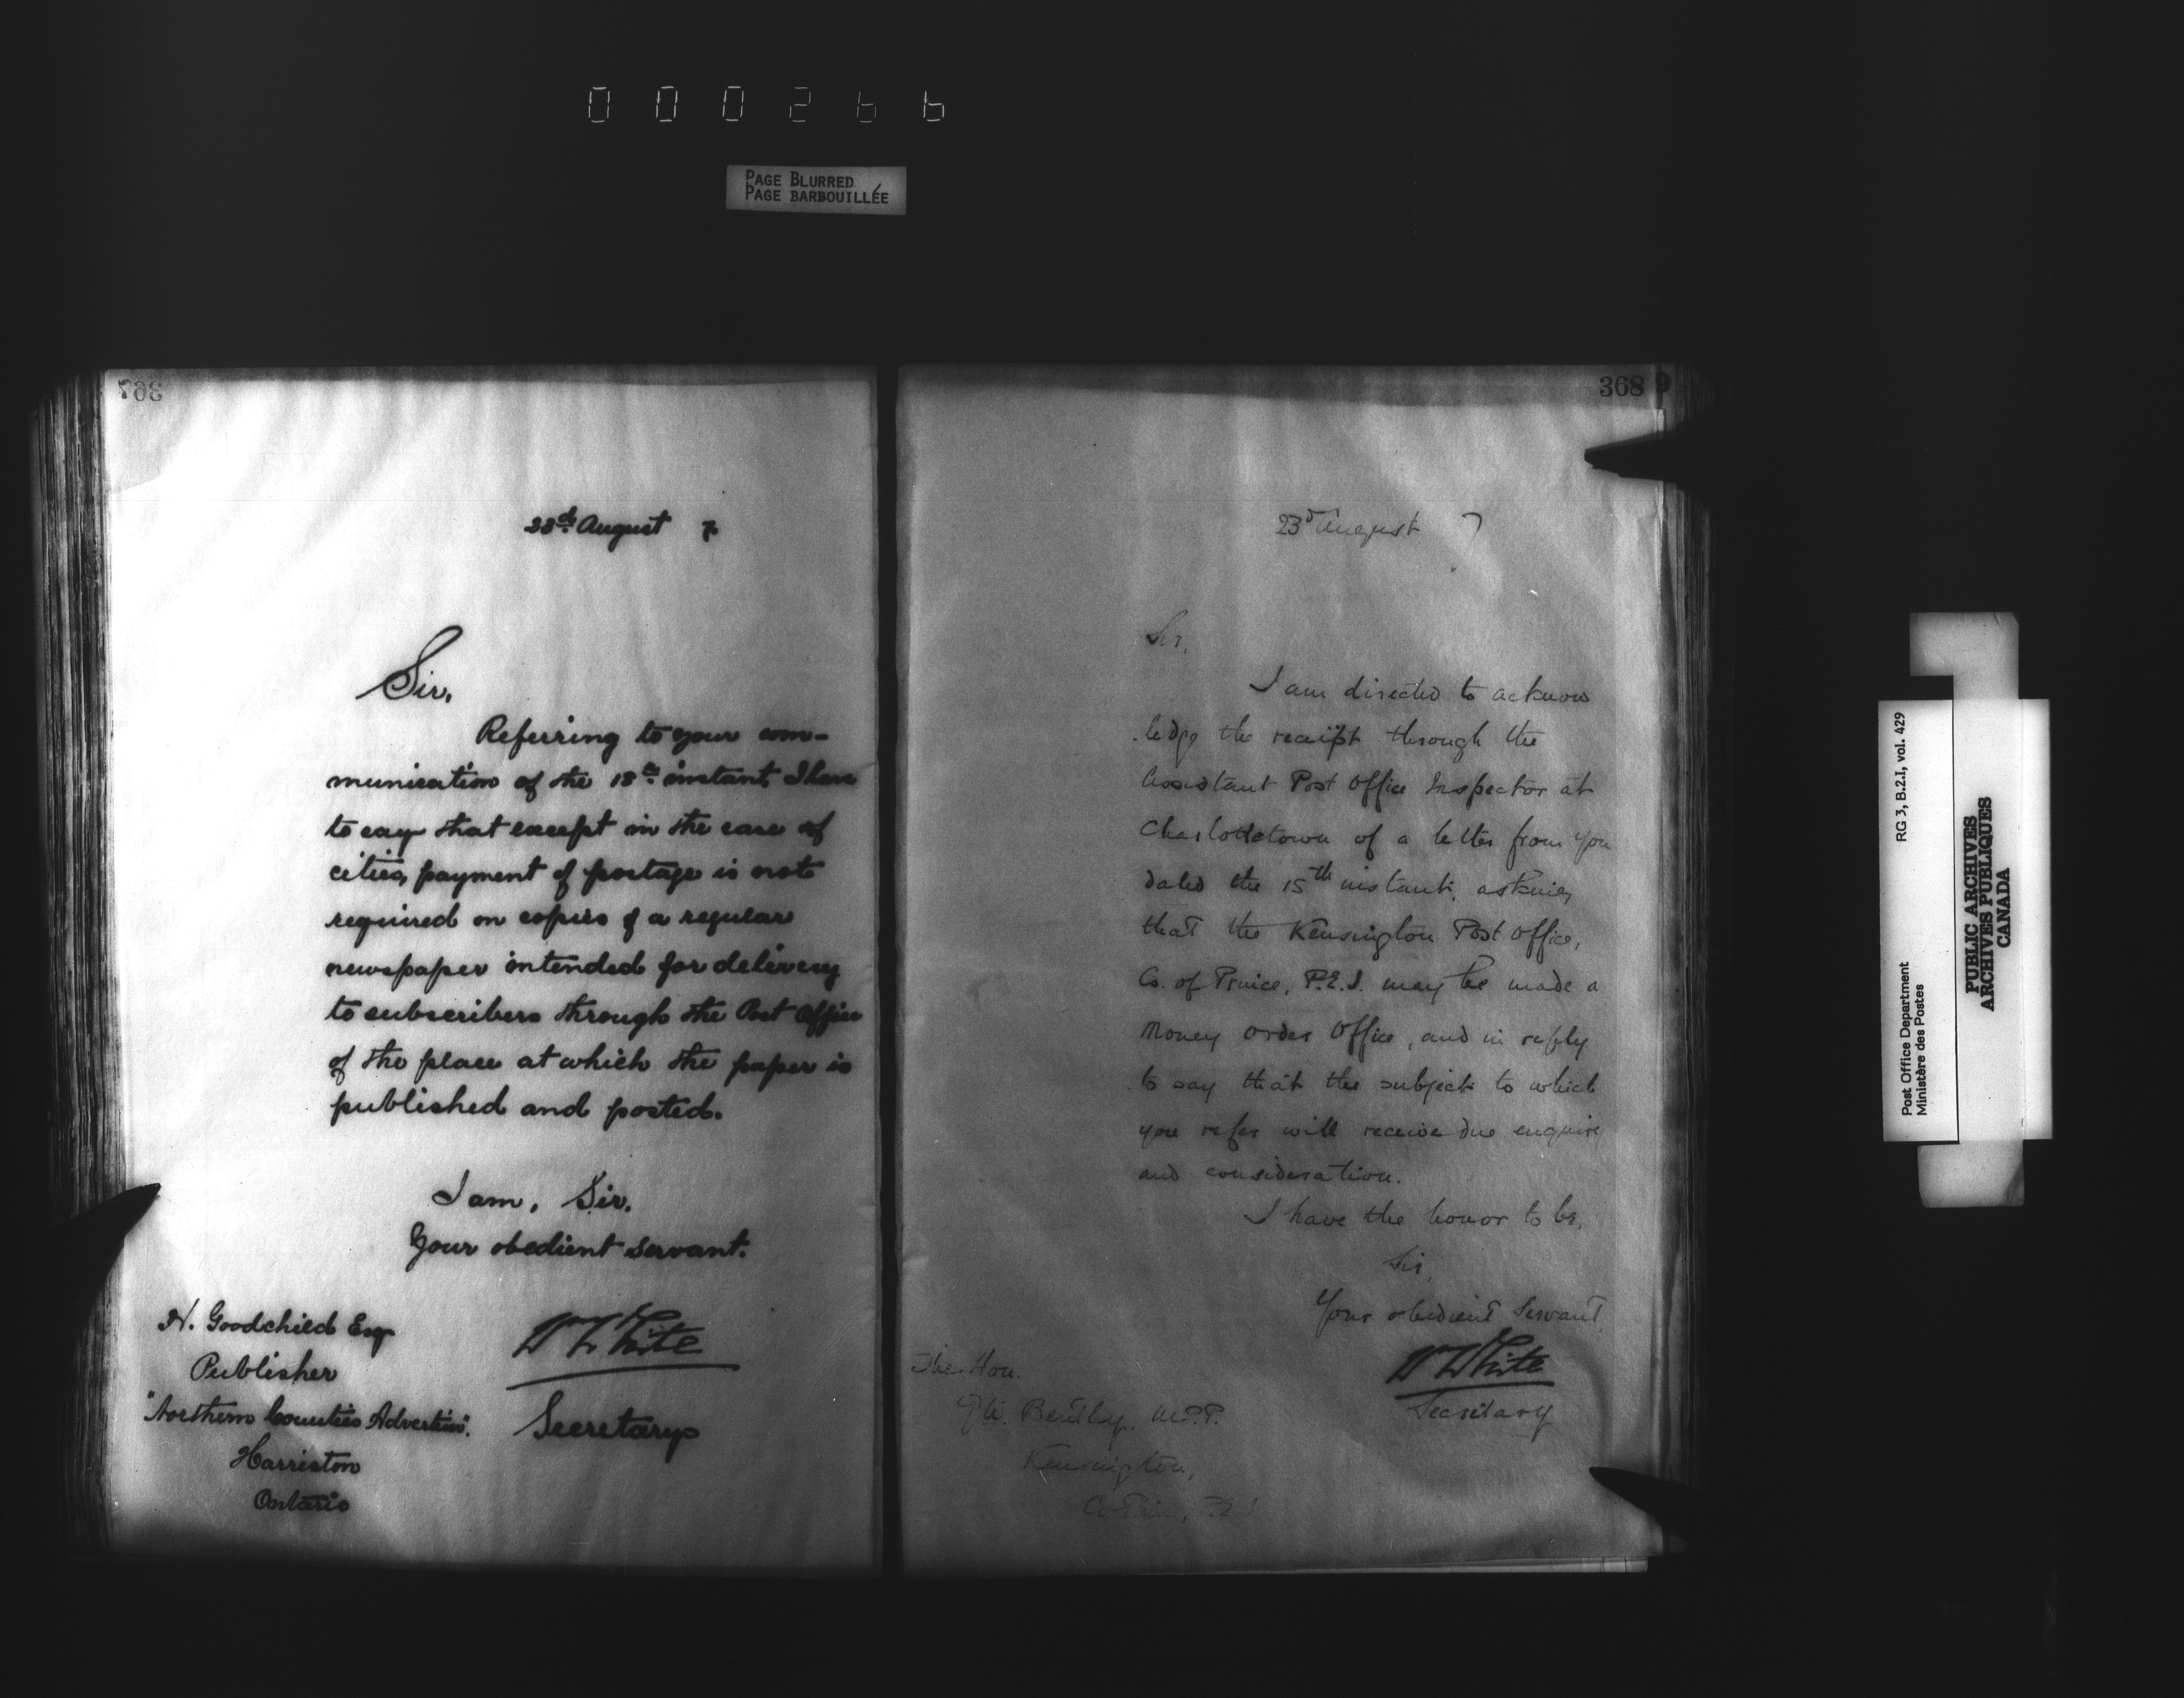 000266
PAGE BLURRED
PAGE BARBOUILLÉE
367
23rd August 7
Sir,
Referring to your com-
munication of the 18th instant I have
to say that except in the case of
cities, payment of postage is not
required on copies of a regular
newspaper intended for delivery
to subscribers through the Post Office
of the place at which the paper is
published and posted.
I am, Sir.
Your obedient servant.
W White
Secretary
H. Goodchild Esqr
Publisher
"Northern Counties Advertiser".
Harriston
Ontario
368
23rd August 7
Sir,
I am directed to acknow
ledge the receipt through the
Assistant Post Office Inspector at
Charlottetown of a letter from you
dated the 15th instant, asking
that the Kensington Post Office,
Co. of Prince, P.E.I. may be made a
Money Order Office, and in reply
to say that the subject to which
you refer will receive due enquiry
and consideration.
I have the honor to be,
Sir,
Your obedient Servant,
W White
Secretary
The Hon.
Bentley, M.P.P.
Kensington,
Co Prince, P.E.I
Post Office Department RG 3, B.2.I, vol. 429
Ministère des Postes
PUBLIC ARCHIVES
ARCHIVES PUBLIQUES
CANADA